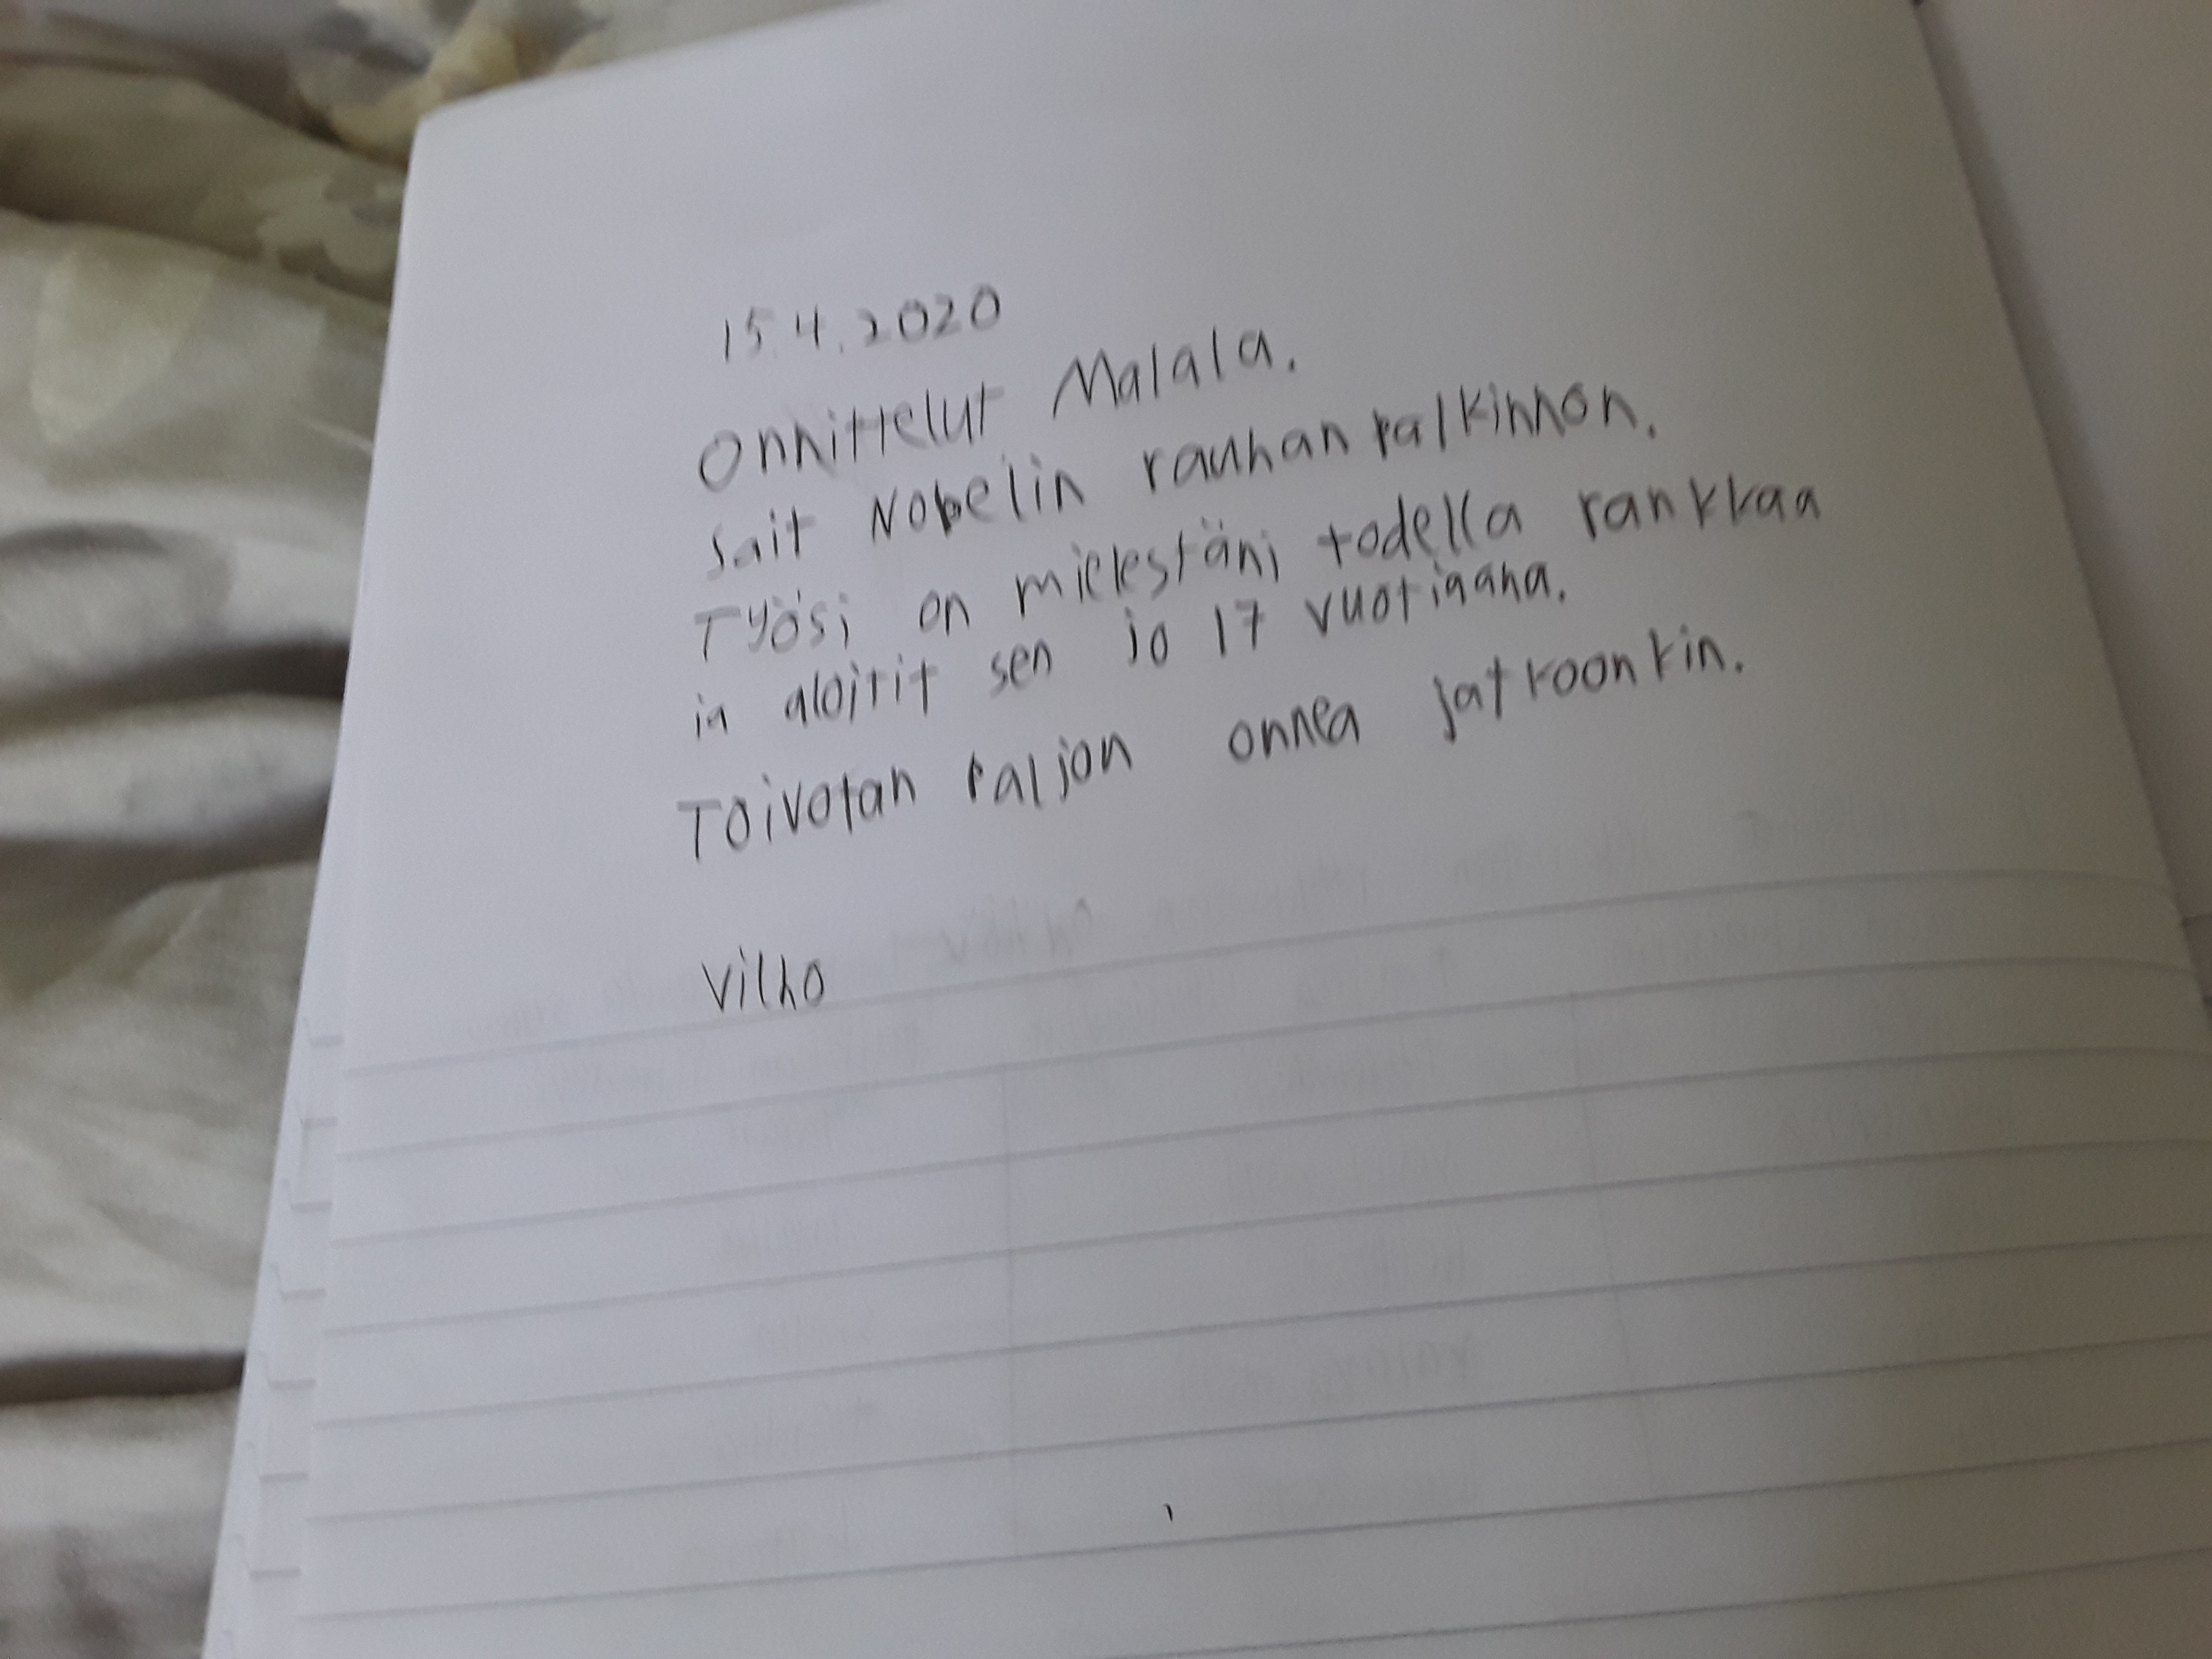 15.4.2020
Onnittelut Malala.
Sait Nobelin rauhan palkinnon.
Työsi on mielestäni todella rankkaa
ja aloitit sen jo 17 vuotiaana.
Toivotan paljon onnea jatkoonkin.
Vilho